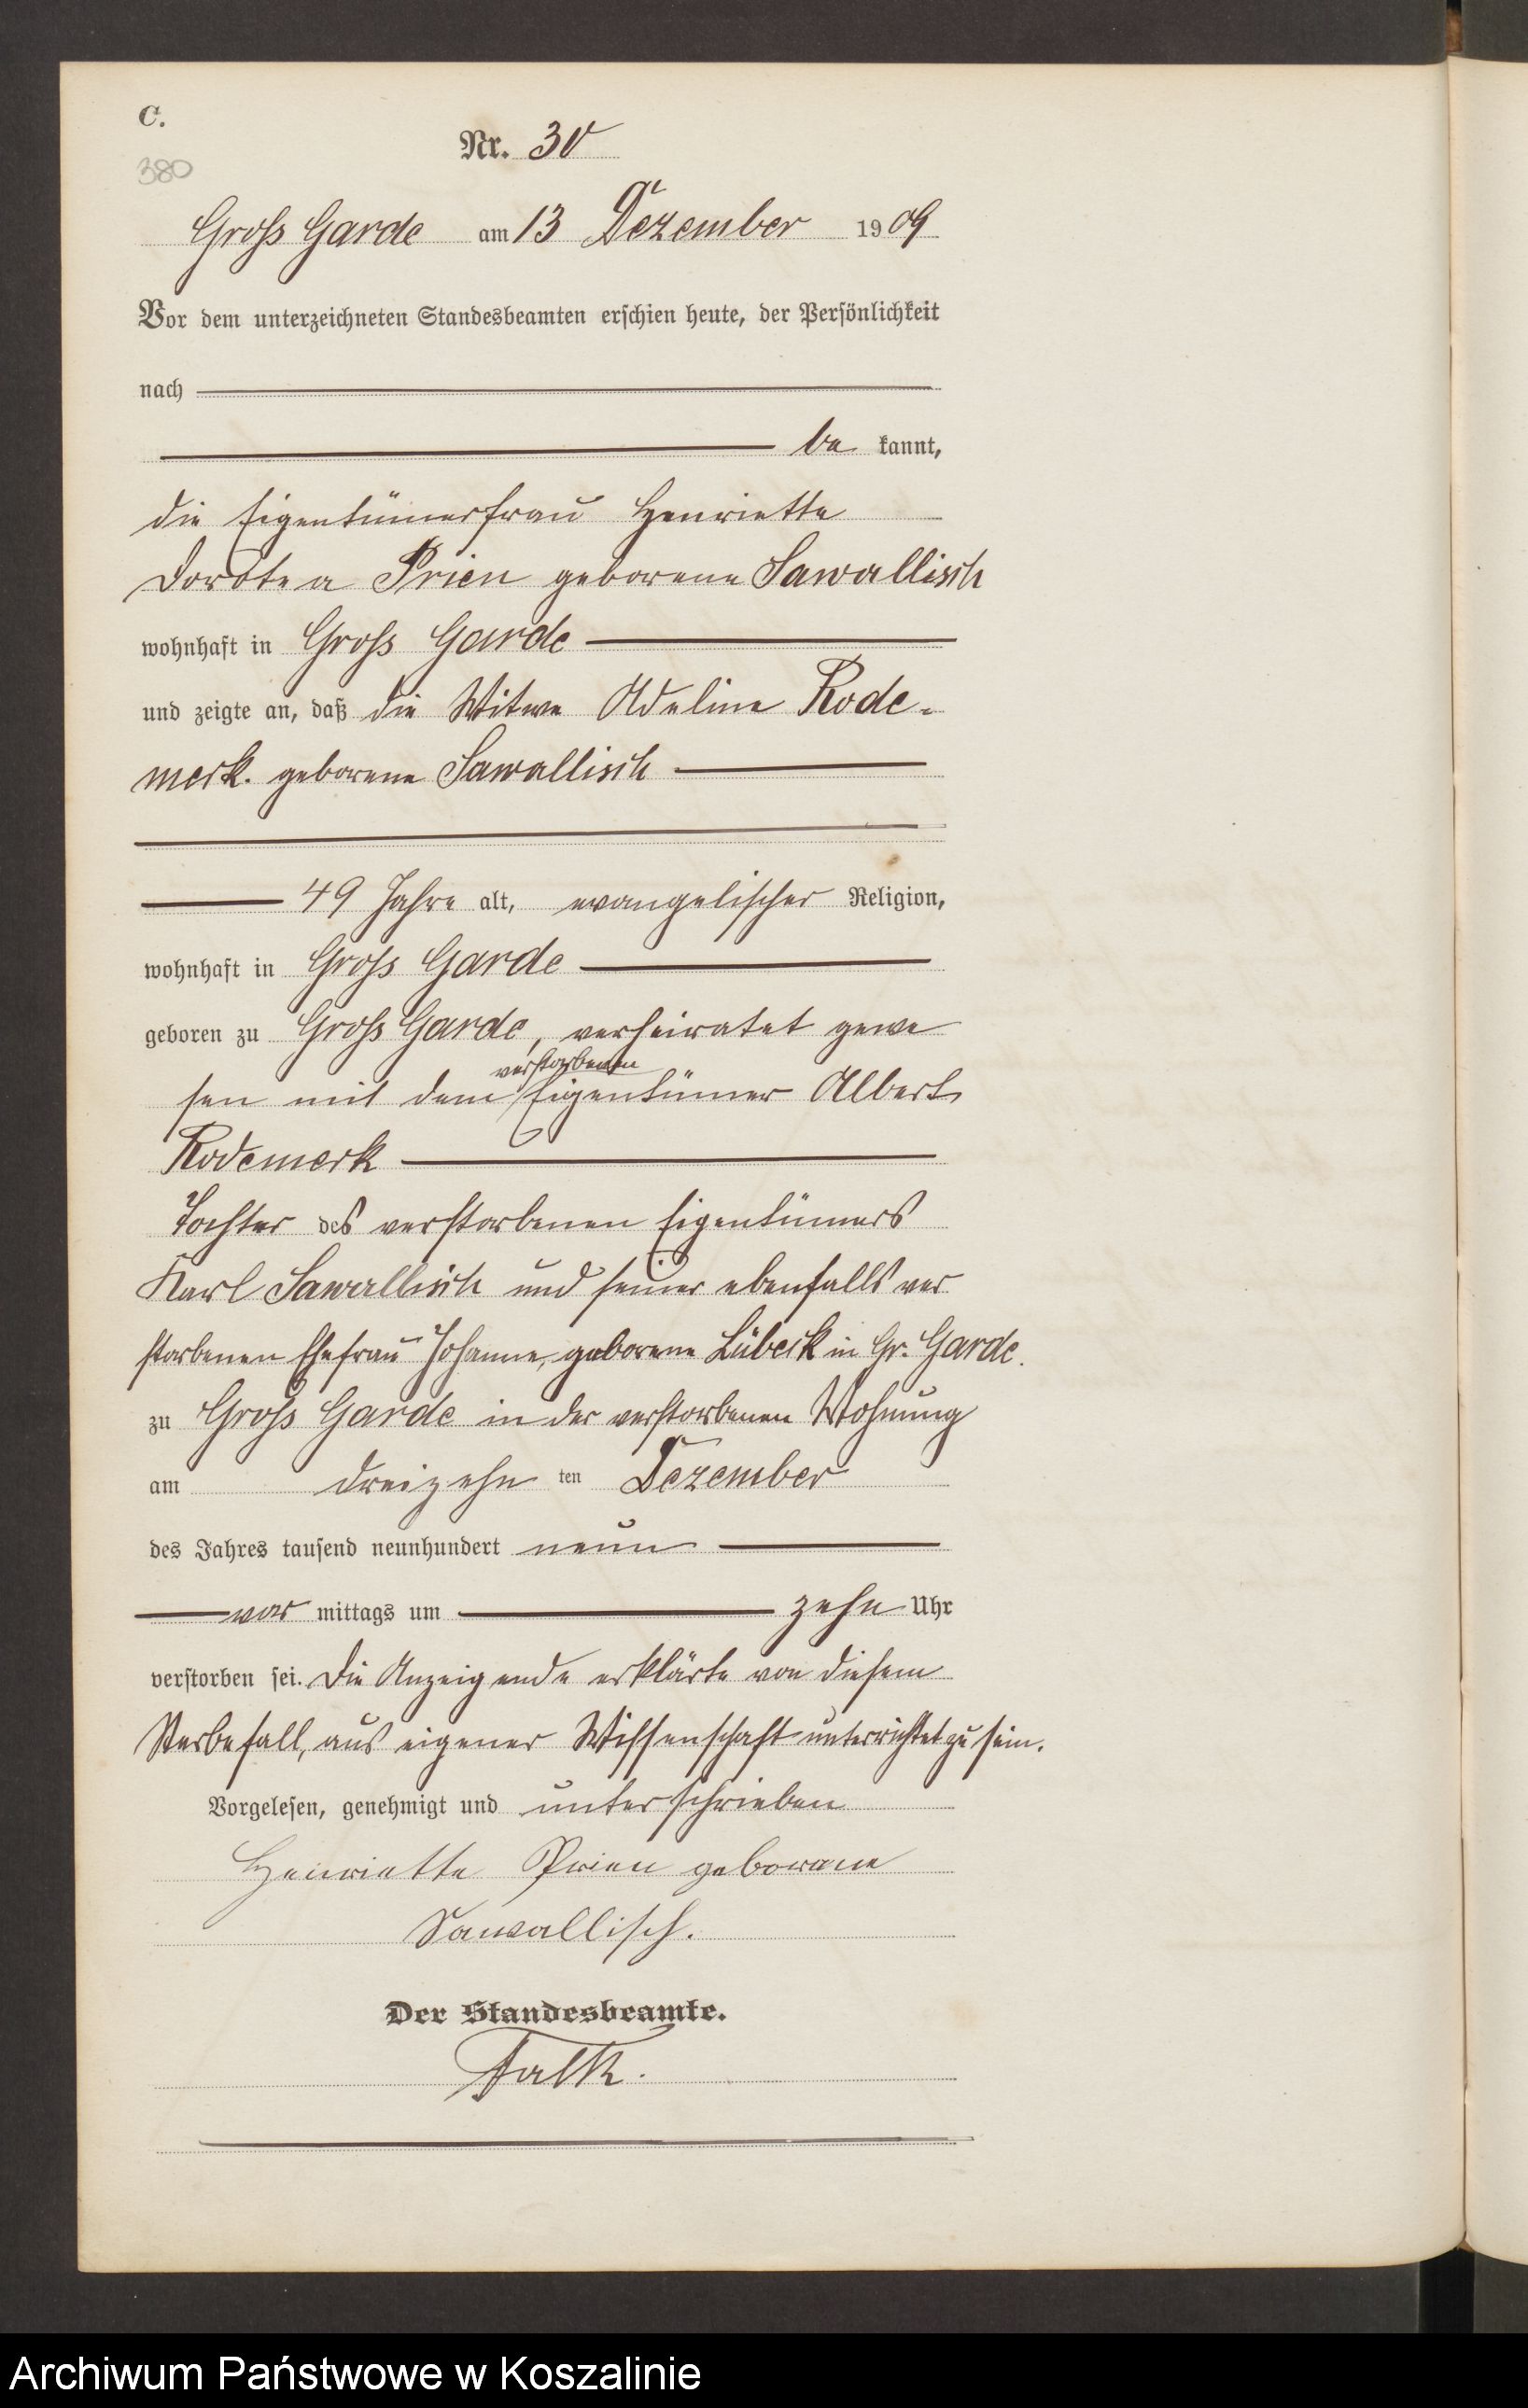 C.
Nr. 30
380
Gross Garde am 13 Dezember 1909
Vor dem unterzeichneten Standesbeamten erschien heute, der Persönlichkeit
nach
be kannt,
die Eigentümerfrau Henriette
Dorotea Prien geborene Sawallisch
wohnhaft in Gross Garde
und zeigte an, daß die Witwe Adeline Rode-
merk geborene Sawallisch
49 Jahre alt, evangelischer Religion,
wohnhaft in Gross Garde
geboren zu Gross Garde, verheiratet gewe
verstorbenen
sen mit dem Eigentümer Albert
Rodemerk
Tochter des verstorbenen Eigentümers
Karl Sawallisch und seiner ebenfalls ver
storbenen Ehefrau Johanne, geborene Lübeck in Gr. Garde.
zu Gross Garde in der verstorbenen Wohnung
am dreizehn ten Dezember
des Jahres tausend neunhundert neun
vor mittags um zehn Uhr
verstorben sei. Die Anzeigende erklärte von diesem
Sterbefall, aus eigener Wissenschaft unterrichtet zu sein.
Vorgelesen, genehmigt und unterschrieben
Henriette Prien geborene
Sawallisch.
Der Standesbeamte.
Falk.
Archiwum Państwowe w Koszalinie